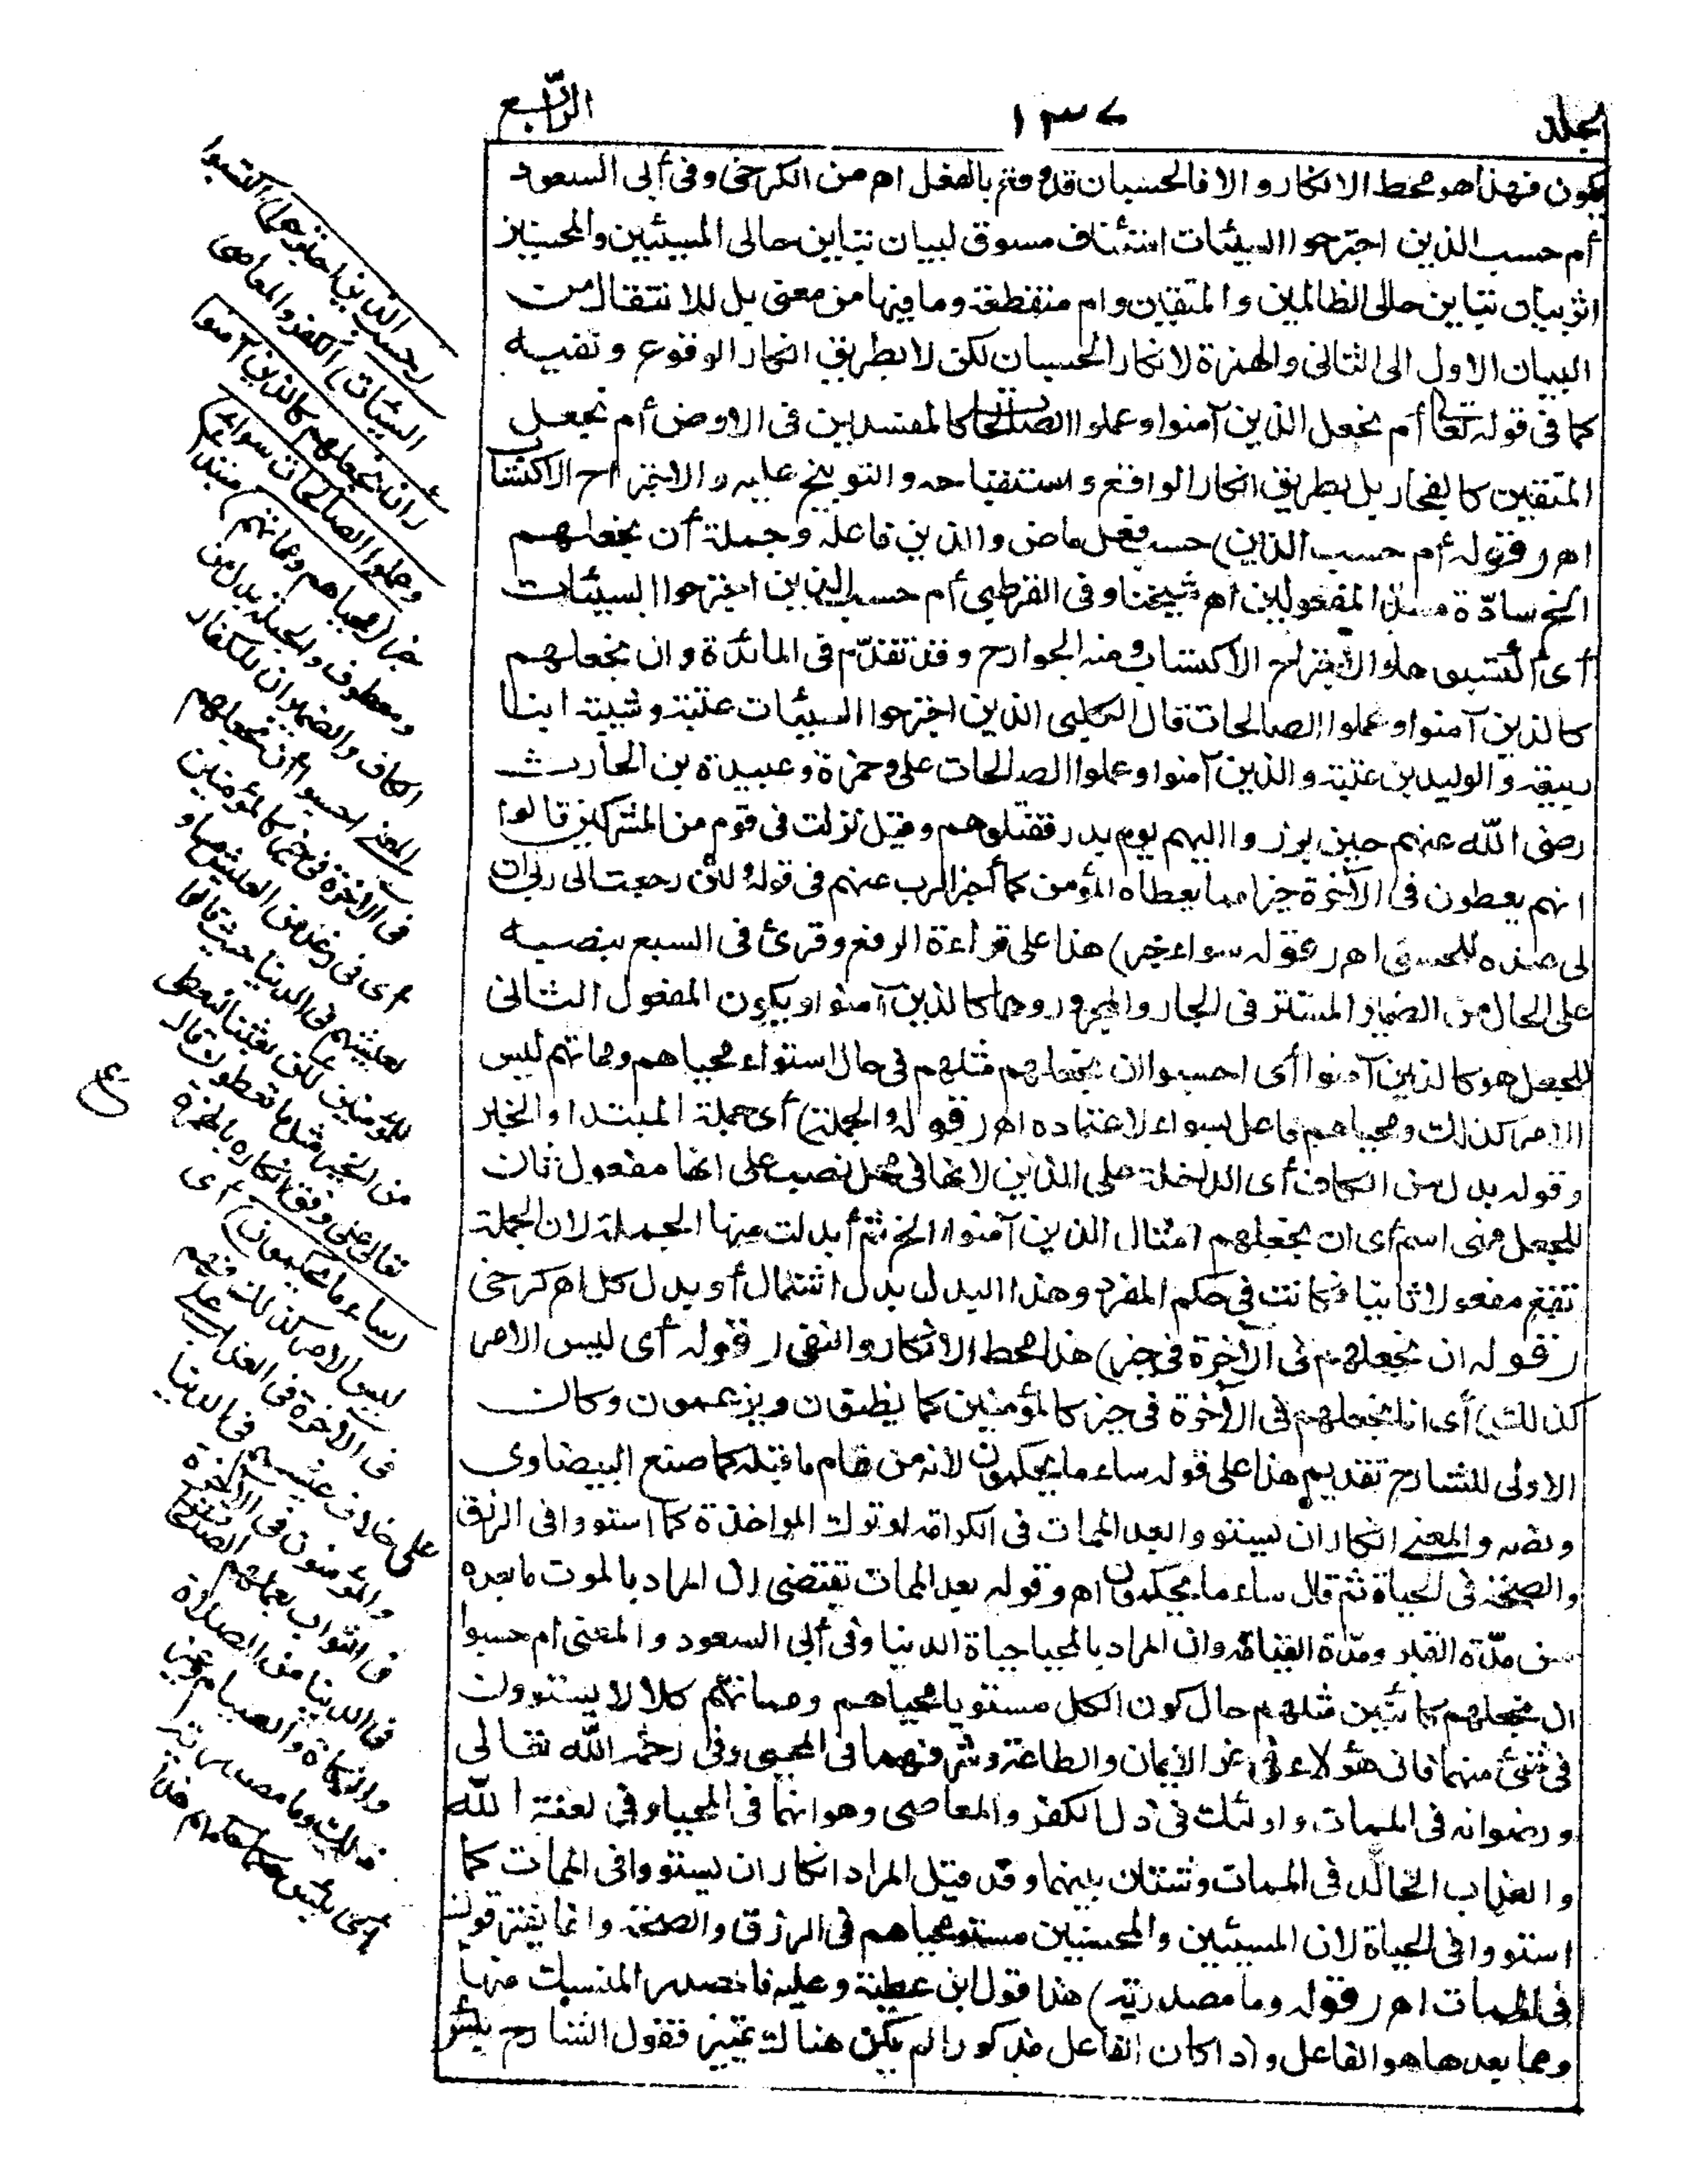 المجلد
١٣٧
الرّابع
يكون فهذا هو محط الانكار والا فالحسبان قد وقع بالفعل اه من الكرخى وفى أبى السعود
أم حسب الذين اجترحوا السيئات استئناف مسوق لبيان تباين حالى المسيئين والمحسنين
اثر بيان تباين حالى الظالمين والمتقين وام منقطعة وما فيها من معنى بل للانتقال من
البيان الاول الى الثانى والهمزة لانكار الحسبان لكن لا بطريق انكار الوقوع ونفيه
كما فى قوله تعا أم نجعل الذين آمنوا وعملوا الصلحت كالمفسدين فى الارض أم نجعل
المتقين كالفجار بل بطريق انكار الواقع واستقباحه والتوبيخ عليه والاجتراح الاكتساب
اهـ (قوله أم حسب الذين) حسب فعل ماض والذين فاعله وجملة أن نجعلهم
الخ سادّة مسدّ المفعولين اه شيخنا وفى القرطبى أم حسب الذين اجترحوا السيئات
أى اكتسبوها والاجتراح الاكتساب ومنه الجوارح وقد تقدّم فى المائدة وان نجعلهم
كالذين آمنوا وعملوا الصالحات قال الكلبى الذين اجترحوا السيئات عتبة وشيبة ابنا
ربيعة والوليد بن عتبة والذين آمنوا وعملوا الصالحات على وحمزة وعبيدة بن الحارث
رضى اللّه عنهم حين برزوا اليهم يوم بدر فقتلوهم وقيل نزلت فى قوم من المشركين قالوا
انهم يعطون فى الآخرة خيرا مما يعطاه المؤمن كما أخبر الرب عنهم فى قوله ولئن رجعت الى ربى ان
لى عنده للحسنى اهـ (قوله سواء خبر) هذا على قراءة الرفع وقرئ فى السبع بنصبه
على الحال من الضمير المستتر فى الجار والمجرور وهما كالذين آمنوا ويكون المفعول الثانى
للجعل هو كالذين آمنوا أى احسبوا ان نجعلهم مثلهم فى حال استواء محياهم ومماتهم ليس
الامر كذلك ومحياهم فاعل بسواء لاعتماده اهـ (قوله والجملة) أى جملة المبتدا والخبر
وقوله بدل من الكاف أى الداخلة على الذين لانها فى محل نصب على انها مفعول ثان
للجعل فهى اسم أى ان نجعلهم امثال الذين آمنوا الخ ثم أبدلت منها الجملة لان الجملة
تقع مفعولا ثانيا فكانت فى حكم المفرد وهذا البدل بدل اشتمال أو بدل كل اه كرخى
(قوله ان نجعلهم فى الآخرة فى خير) هذا محط الانكار والنفى (قوله أى ليس الامر
كذلك) أى انا نجعلهم فى الآخرة فى خير كالمؤمنين كما يظنون ويزعمون وكان
الاولى للشارح تقديم هذا على قوله ساء ما يحكمون لانه من تمام ما قبله كما صنع البيضاوى
ونصه والمعنى انكار ان يستووا بعد الممات فى الكرامة او ترك المواخذة كما استووا فى الرزق
والصحة فى الحياة ثم قال ساء ما يحكمون اه وقوله بعد الممات تقتضى ان المراد بالموت ما بعده
من مدّة القبر ومدّة القيامة وان المراد بالمحيا حياة الدنيا وفى أبى السعود والمعنى ام حسبوا
ان نجعلهم كائنين مثلهم حال كون الكل مستويا محياهم ومماتهم كلا لا يستوون
فى شئ منهما فان هؤلاء فى عز الايمان والطاعة وشرفهما فى المحيى وفى رحمة اللّه تعالى
ورضوانه فى الممات واولئك فى ذل الكفر والمعاصى وهوانهما فى المحيا وفى لعنة اللّه
والعذاب الخالد فى الممات وشتان بينهما وقد قيل المراد انكار ان يستووا فى الممات كما
استووا فى الحياة لان المسيئين والمحسنين مستو محياهم فى الرزق والصحة وانما يفترقون
فى الممات اهـ (قوله وما مصدرية) هذا قول ابن عطية وعليه فالمصدر المنسبك منها
ومما بعدها هو الفاعل واذا كان الفاعل مذكورا لم يكن هناك تمييز فقول الشارح بئس
(حسب الذين اجترحوا) اكتسبوا
السيئات) الكفر والمعاصى
(أن نجعلهم كالذين آمنوا
وعملوا الصالحات سواء)
خبر (محياهم ومماتهم) مبتدأ
ومعطوف والجملة بدل من
الكاف والضميران للكفار
المعنى احسبوا أن نجعلهم
فى الآخرة فى خير كالمؤمنين
أى فى رغد من العيش مساو
لعيشهم فى الدنيا حيث قالوا
للمؤمنين لئن بعثنا لنعطى
من الخير مثل ما تعطون قال
تعالى على وفق انكاره بالهمزة
(ساء ما يحكمون) أى
ليس الامر كذلك فهم
فى الآخرة فى العذاب على
خلاف عيشهم فى الدنيا
والمؤمنون فى الآخرة
فى الثواب بعملهم الصالحات
فى الدنيا من الصلاة
والزكاة والصيام وغير
ذلك وما مصدرية
أى بئس حكما حكمهم هذا
ع